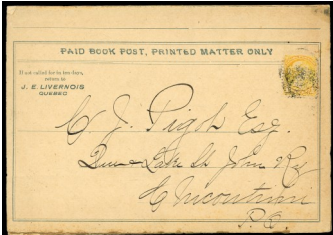 PAID BOOK POST, PRINTED MATTER ONLY
If not called for in ten days,
return to
J. E. LIVERNOIS
QUEBEC
C J. Pigot Esq.
Lake St John Ry
Chicoutimi
P. Q.